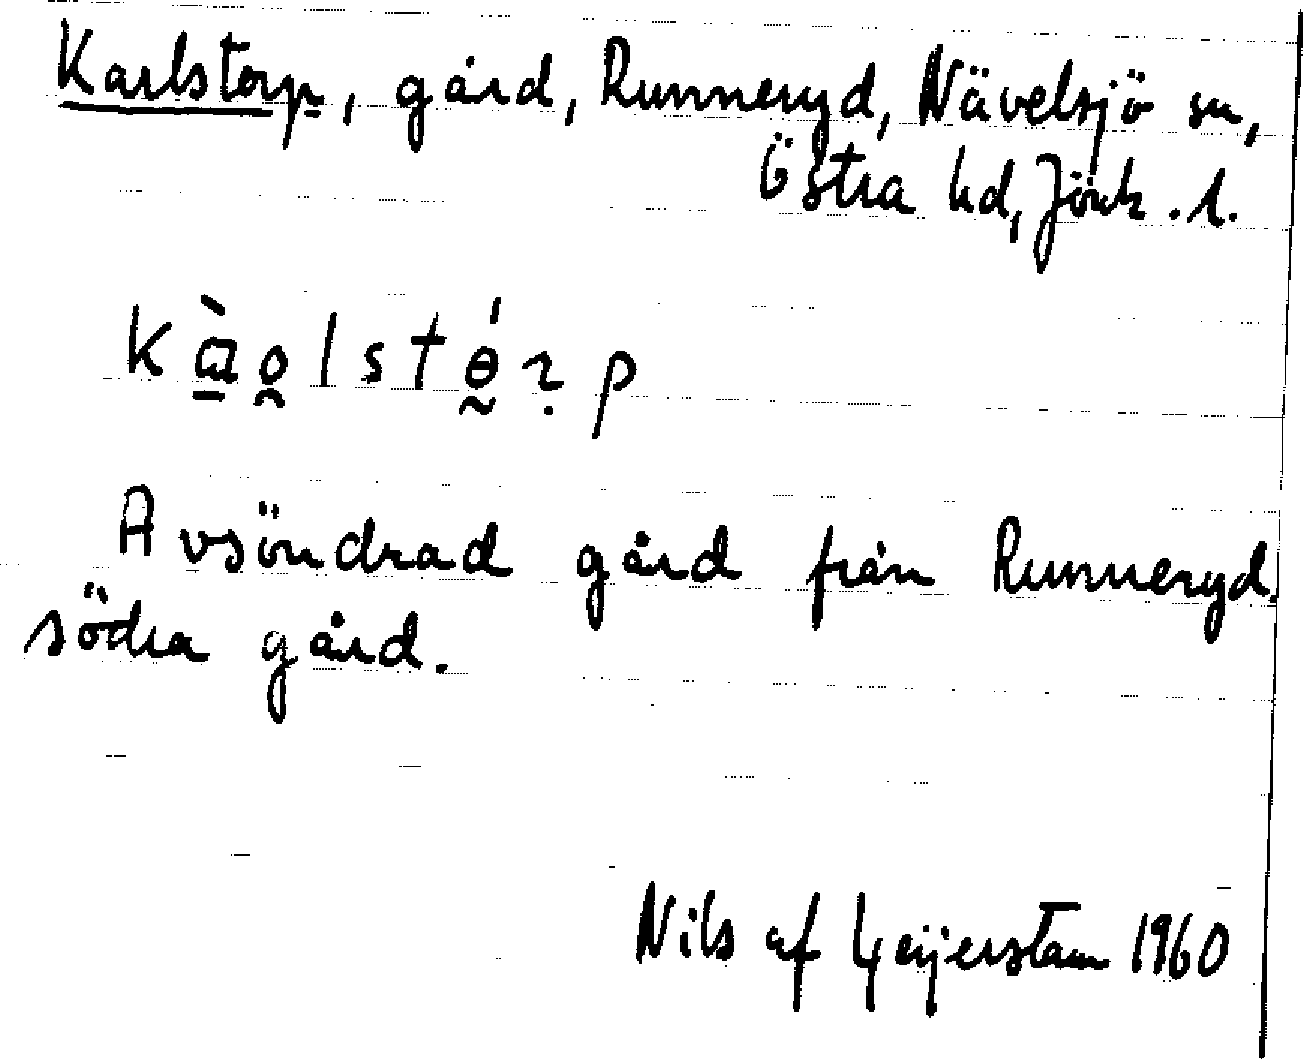 Karlstorp, gård, Runneryd, Nävelsjö sn,
Östra hd, Jönk. l.
Avsöndrad gård från Runneryd.
södra gård.
Nils af Geijerstam 1960